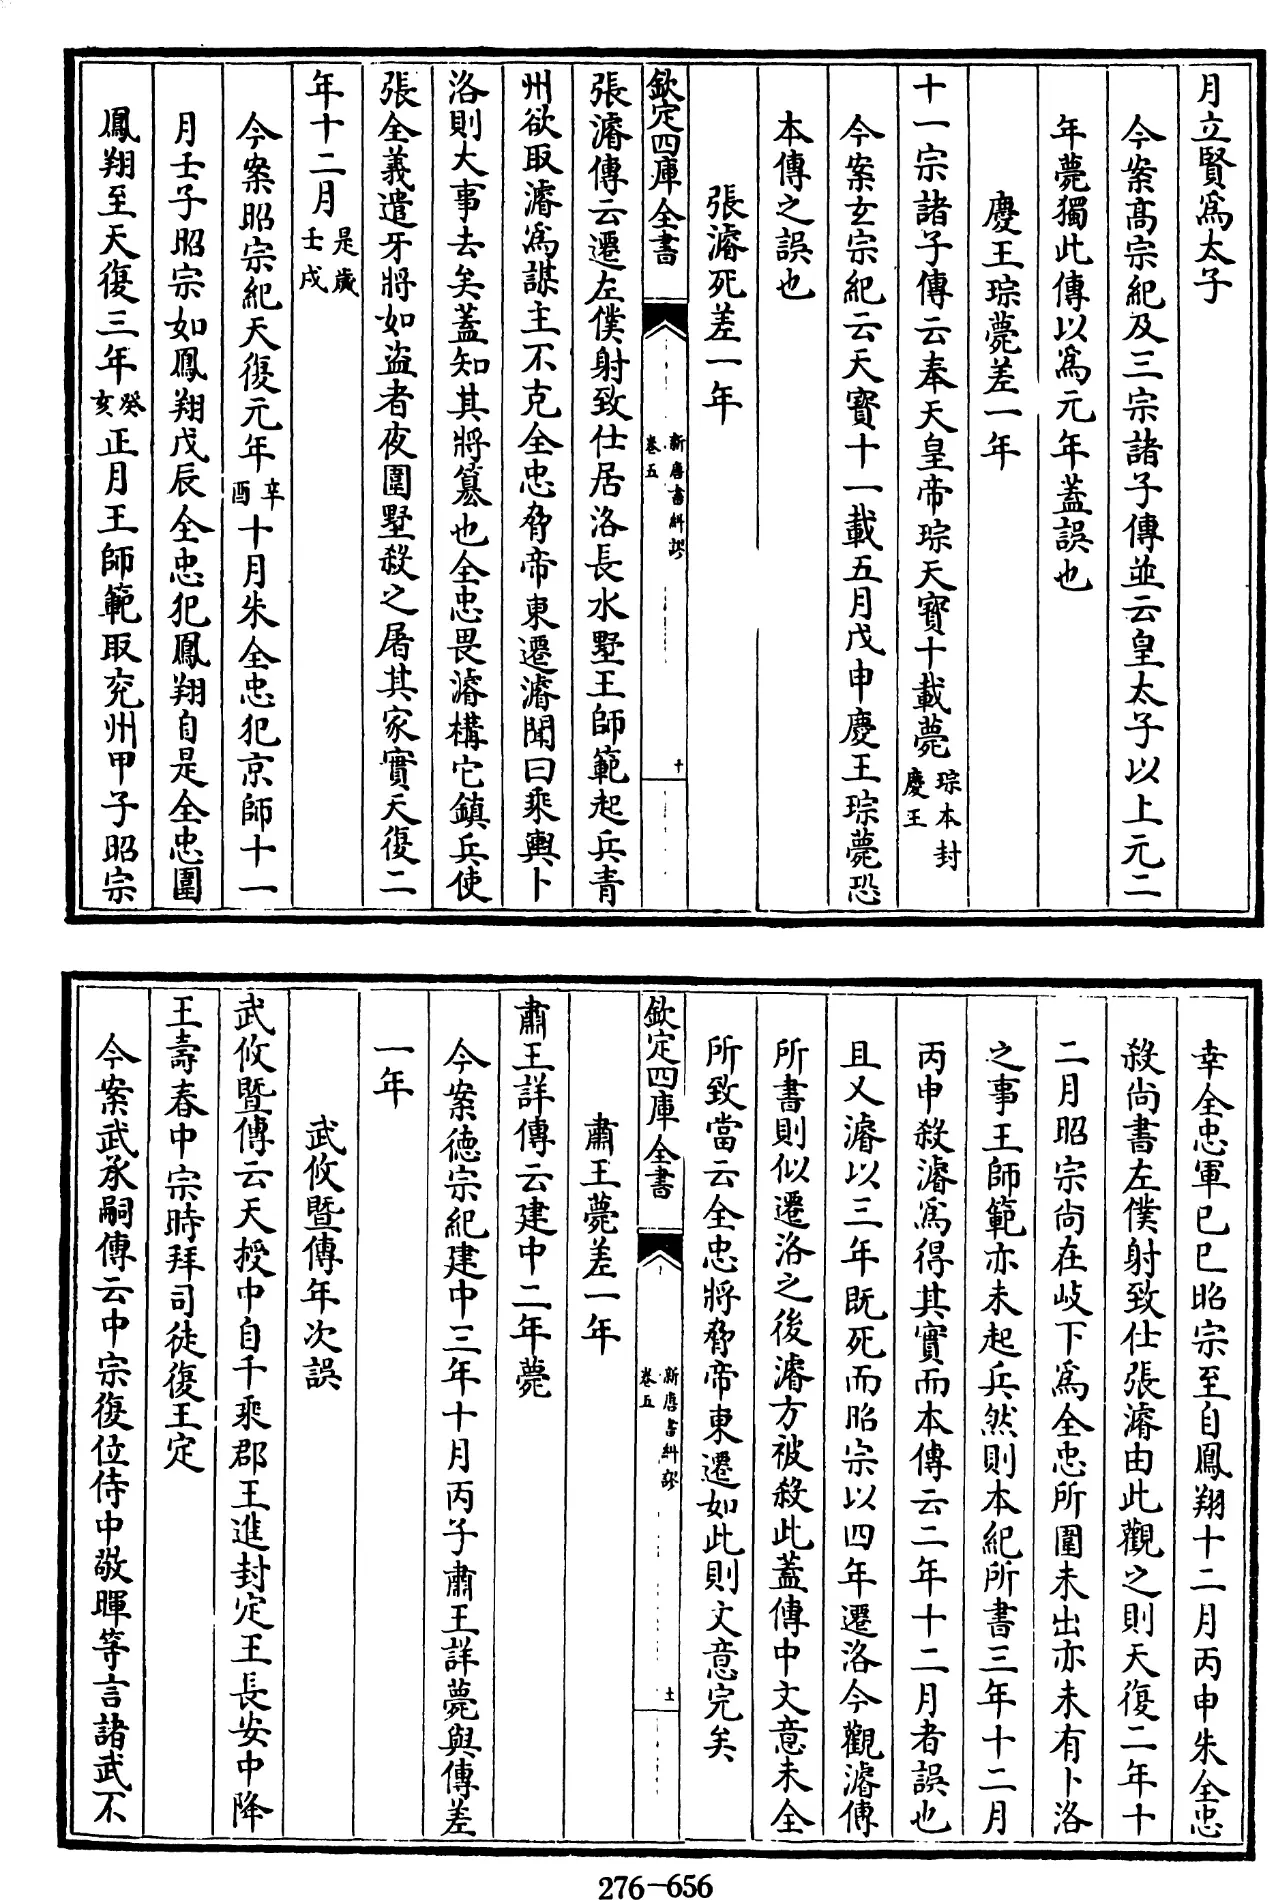 月立賢為太子
今案髙宗紀及三宗諸子傳並云皇太子以上元二
年薨獨此傳以為元年蓋誤也
慶王琮薨差一年
十一宗諸子傳云奉天皇帝琮天寳十載薨琮本封慶王
今案玄宗紀云天寳十一載五月戊申慶王琮薨恐
本傳之誤也
張濬死差一年
欽定四庫全書
新唐書糾謬
卷五
十
張濬傳云遷左僕射致仕居洛長水墅王師範起兵青
州欲取濬為謀主不克全忠脅帝東遷濬聞曰乘輿卜
洛則大事去矣蓋知其將簒也全忠畏濬構它鎮兵使
張全義遣牙將如盗者夜圍墅殺之屠其家實天復二
年十二月是歲壬戌
今案昭宗紀天復元年辛酉十月朱全忠犯京師十一
月壬子昭宗如鳳翔戊辰全忠犯鳳翔自是全忠圍
鳳翔至天復三年癸亥正月王師範取兖州甲子昭宗
幸全忠軍己巳昭宗至自鳳翔十二月丙申朱全忠
殺尚書左僕射致仕張濬由此觀之則天復二年十
二月昭宗尚在岐下為全忠所圍未出亦未有卜洛
之事王師範亦未起兵然則本紀所書三年十二月
丙申殺濬為得其實而本傳云二年十二月者誤也
且又濬以三年既死而昭宗以四年遷洛今觀濬傳
所書則似遷洛之後濬方被殺此蓋傳中文意未全
所致當云全忠將脅帝東遷如此則文意完矣
欽定四庫全書
新唐書糾謬
卷五
十一
肅王薨差一年
肅王詳傳云建中二年薨
今案德宗紀建中三年十月丙子肅王詳薨與傳差
一年
武攸暨傳年次誤
武攸暨傳云天授中自千乘郡王進封定王長安中降
王壽春中宗時拜司徒復王定
今案武承嗣傳云中宗復位侍中敬暉等言諸武不
276-656